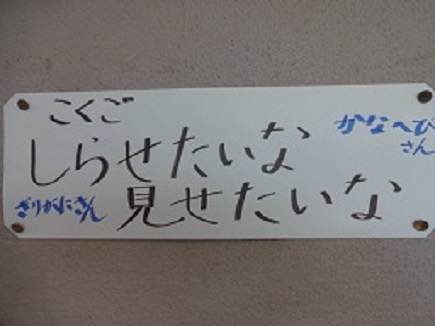 こくご
しらせたいな
見せたいな
かなへび
さん
ざりがにさん